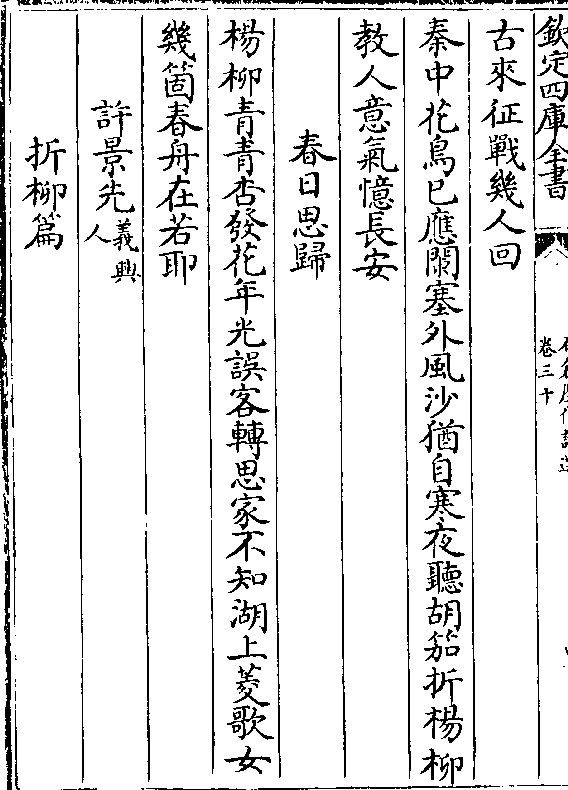 欽定四庫全書
卷三十
古來征戰幾人回
秦中花鳥已應闌塞外風沙猶自寒夜聽胡笳折楊柳
教人意氣憶長安
春日思歸
楊柳青青杏發花年光誤客轉思家不知湖上菱歌女
幾箇春舟在若耶
許景先義興人
折柳篇